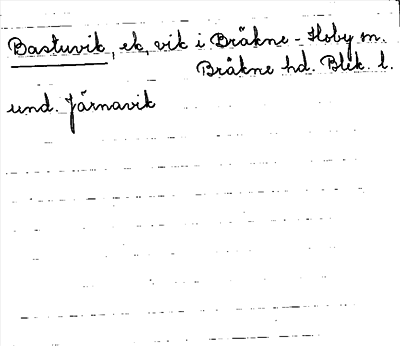 Bastuvik, ek, vik i Bräkne-Hoby sn.
Bräkne hd. Blek. l.
und. Järnavik